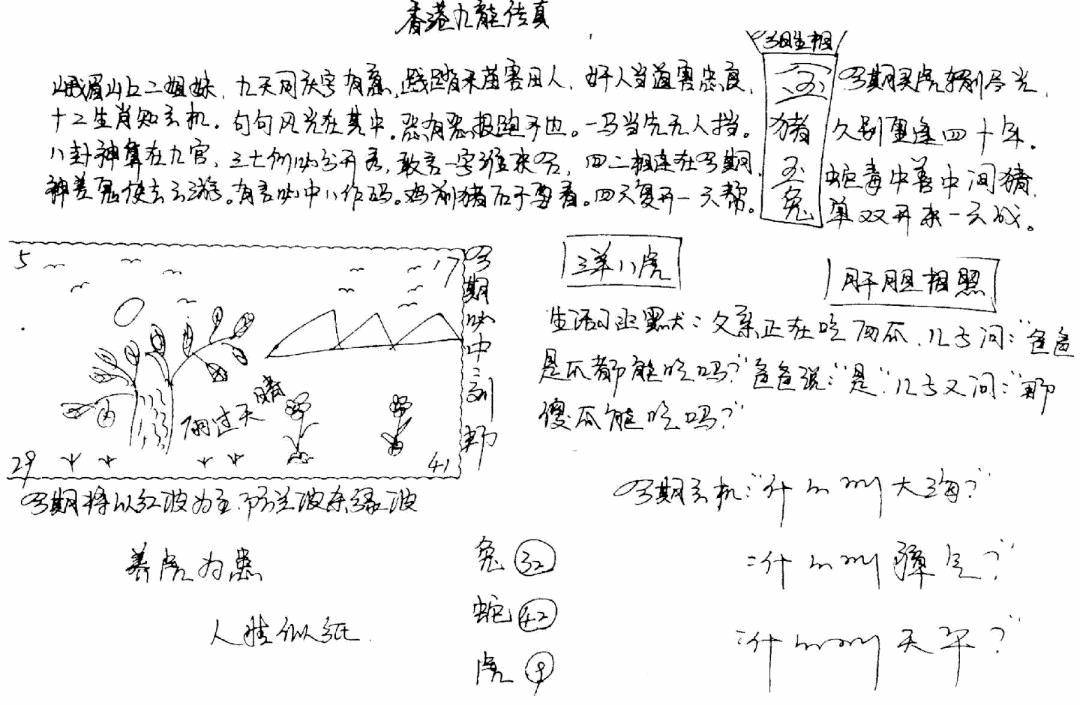 香港九龍传真
峨眉山上二姐妹，九天同庆字有意，践踏禾苗害田人，奸人当道害忠良，
十二生肖知玄机。句句风光在其中。恶有恶报跑不也。一马当先无人挡。
八卦神算在九宫，三七例必公开看，敢言一字谁来，四二相连在期，
神差鬼使去云游。有言必中八作码。鸡前猪后于要看。四天复开一天帮。
生相
猪
玉
兔
期买虎输尽光，
久别重逢四十年。
蛇毒中善中间猪，
单双开来一云战。
5
17
29
41
雨过天晴
期必中
三羊八虎
肝胆相照
生活幽默：父亲正在吃西瓜，儿子问："爸爸
是瓜都能吃吗？"爸爸说："是"儿子又问："那
傻瓜能吃吗？"
期将以红波为主，防兰波杀绿波
养虎为患
人情似纸
兔 32
蛇 42
虎 9
期玄机："什么叫大海？"
："什么叫骄气？"
："什么叫天平？"